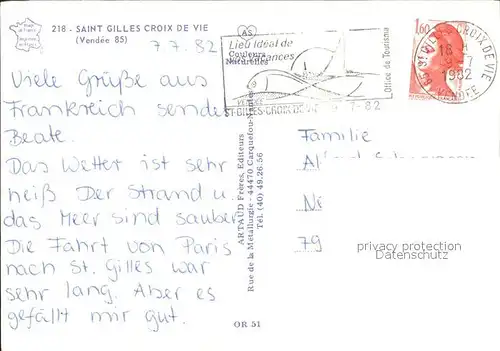 218 - SAINT GILLES CROIX DE VIE
(Vendée 85)
7.7.82
Viele Grüße aus
Frankreich sendet
Beate.
Das Wetter ist sehr
heiß Der Strand u.
das Meer sind sauber
Die Fahrt von Paris
nach St. Gilles war
sehr lang. Aber es
gefällt mir gut.
AS
Couleurs
Naturelles
Lieu Idéal de
Vacances
ST-GILLES-CROIX DE VIE
7-82
Office de Tourisme
1,60
CROIX DE VIE
18 H
7
1982
VENDEE
ARTAUD Frères, Editeurs
Rue de la Métallurgie - 44470 Carquefou-Nantes
Tél. (40) 49.26.56
OR 51
Familie
79
privacy protection
Datenschutz